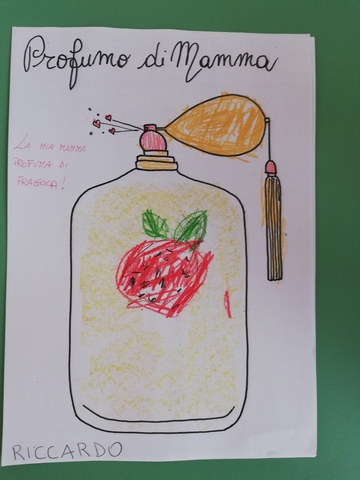 Profumo di Mamma
LA MIA MAMMA
PROFUMA DI
FRAGOLA!
RICCARDO